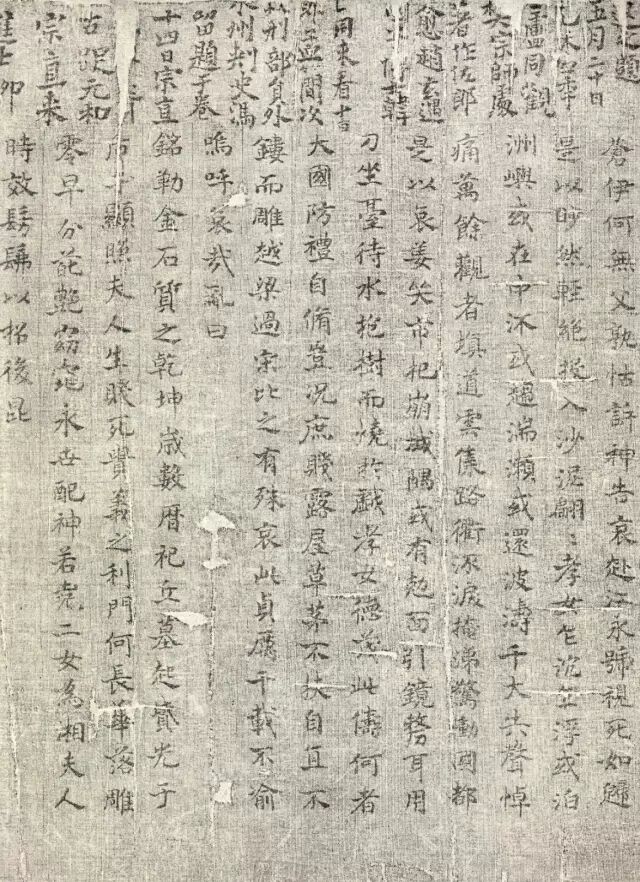 五月二十日
盧同觀
樊宗師處
著作佐郎
愈趙玄遇
刑部員外
州刺史馮
留題于卷
十四日宗直
元和
宗直来
蒼伊何無父孰怙訴神告哀赴江永號視死如歸
是以眇然輕絕投入沙泥翩〻孝女乍沉乍浮或泊
洲嶼或在中流或趨湍瀨或還波濤千夫共聲悼
痛萬餘觀者填道雲集路衢流淚掩涕驚動國都
是以哀姜哭市杞崩城隅或有尅面引鏡剺耳用
刀坐臺待水抱樹而燒於戲孝女德茂此儔何者
大國防禮自脩豈況庶賤露屋草茅不扶自直不
鏤而雕越梁過宋比之有殊哀此貞厲千載不渝
嗚呼哀哉亂曰
銘勒金石質之乾坤歲數曆祀丘墓起墳光于
后土顯照夫人生賤死貴義之利門何長華落雕
零早分葩艷窈窕永世配神若堯二女為湘夫人
時效髣髴以招後昆